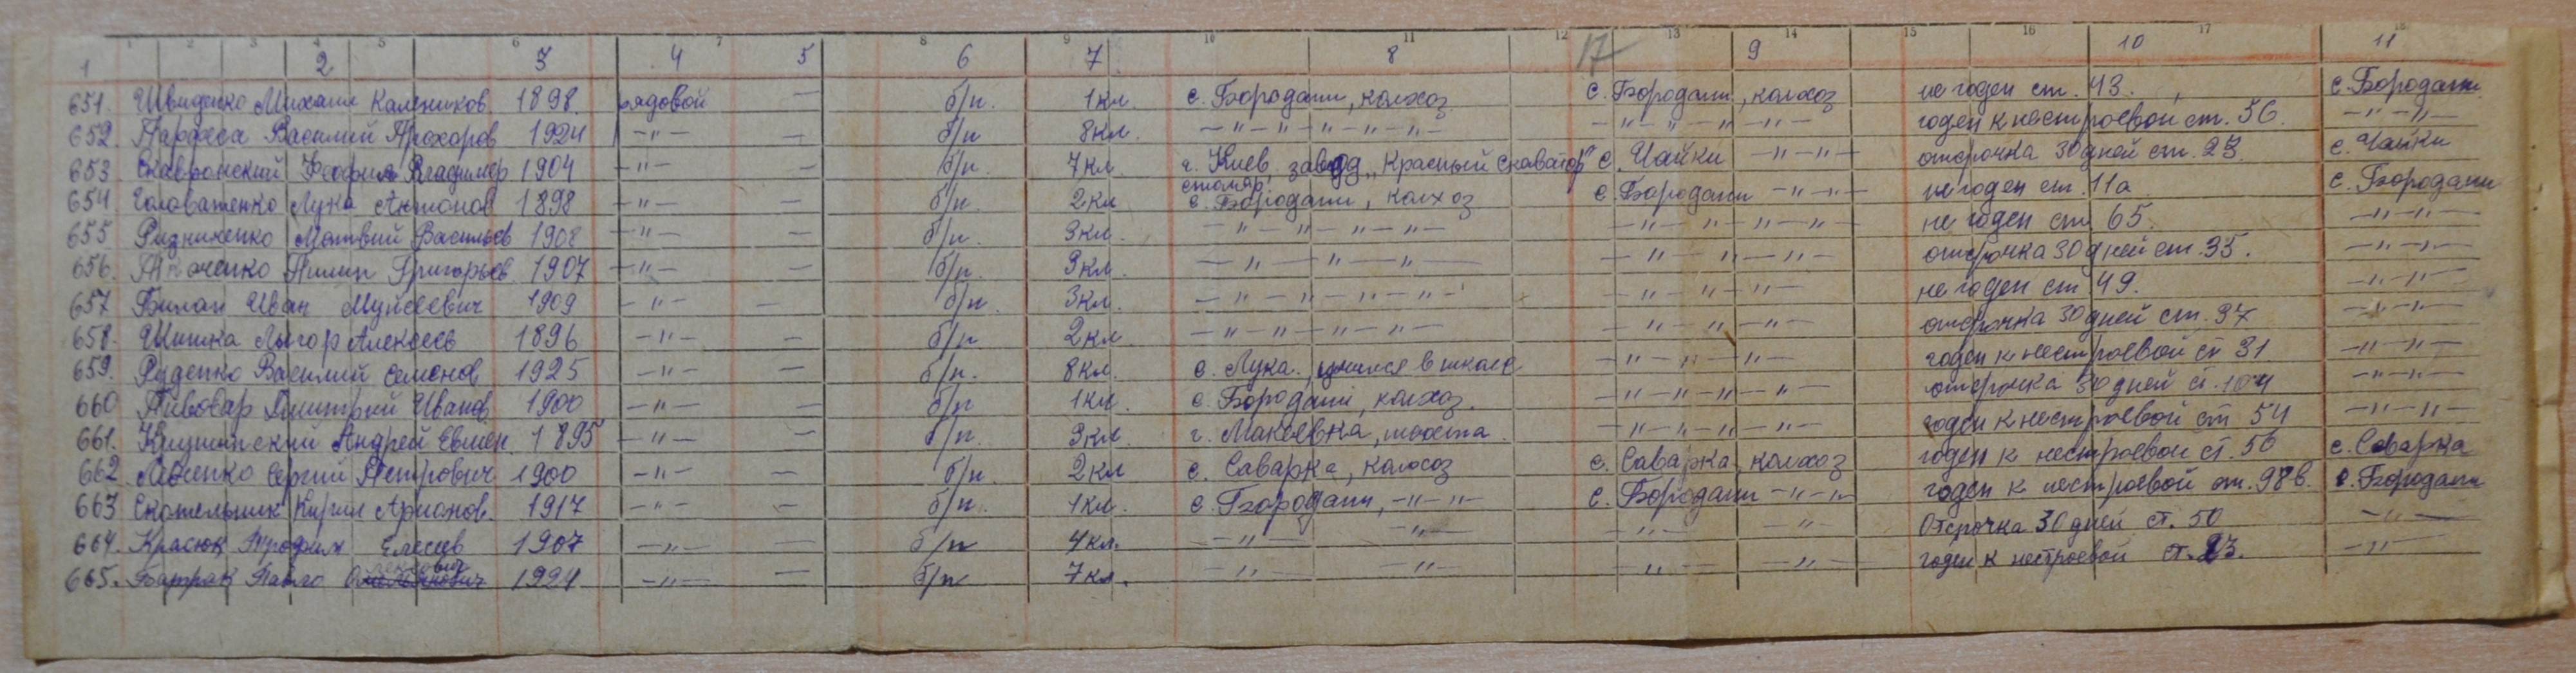 1 2 3 4 5 6 7 8 9 10 11 12 13 14 15 16 17 18
1 2 3 4 5 6 7 8 17 9 10 11
651. Швиденко Михаил Калеников 1898 рядовой — б/п. 1 кл. с. Бородани, колхоз с. Бородани, колхоз не годен ст. 43. с. Бородани
652. Василий Прохоров 1924 —"— — б/п 8 кл. —"—"—"—"—"— —"—"—"—"— годен к нестроевой ст. 56. —"—"—
653 Скавронский Феофил Владимир 1904 —"— — б/п. 7 кл. г. Киев завод „Красный Скаватор" с. Чайки —"—"— отсрочка 30 дней ст. 23. с. Чайки
столяр.
654. Головатенко Лука Антонов 1898 —"— — б/п. 2 кл с. Бородани, колхоз с. Бородани —"—"— не годен ст. 11а с. Бородани
655 Ризниченко Матвий Васильев 1908 —"— — б/п. 3 кл. —"—"—"—"— —"—"—"—"— не годен ст. 65. —"—"—
656. Пилип Григорьев 1907 —"— — б/п. 3 кл. —"—"—"— —"—"—"— отсрочка 30 дней ст. 35. —"—"—
657 Билан Иван Муйсеевич 1909 —"— — б/п. 3 кл. —"—"—"—"—"— —"—"—"— не годен ст 49. —"—"—
658. Шишка Лыгор Алексеев 1896 —"— — б/п 2 кл —"—"—"—"— —"—"—"— отсрочка 30 дней ст. 37 —"—"—
659. Руденко Василий Семенов 1925 —"— — б/п. 8 кл. с. Лука, учился в школе —"—"—"— годен к нестроевой ст 31 —"—"—
660 Пивовар Дмитрий Иванов 1900 —"— — б/п 1 кл. с. Бородани, колхоз. —"—"—"—"— отсрочка 30 дней ст. 104 —"—"—
661. Андрей Евмен. 1895 —"— — б/п. 3 кл. г. Макеевка, шахта —"—"—"—"— годен к нестроевой ст 54 —"—"—
662 Сергий Петрович 1900 —"— — б/п. 2 кл с. Саварка, колхоз с. Саварка, колхоз годен к нестроевой ст. 56 с. Саварка
663 Скотельник Кирил 1917 —"— — б/п. 1 кл. с. Бородани, —"—"— с. Бородани —"—"— годен к нестроевой ст. 98в. с. Бородани
664. Красюк Трофим Елесеев 1907 —"— — б/п 4 кл. —"— —"— —"— —"— Отсрочка 30 дней ст. 50 —"—
665. Батрак Павло 1924 —"— — б/п 7 кл. —"— —"— —"— —"— годен к нестроевой ст. 23. —"—